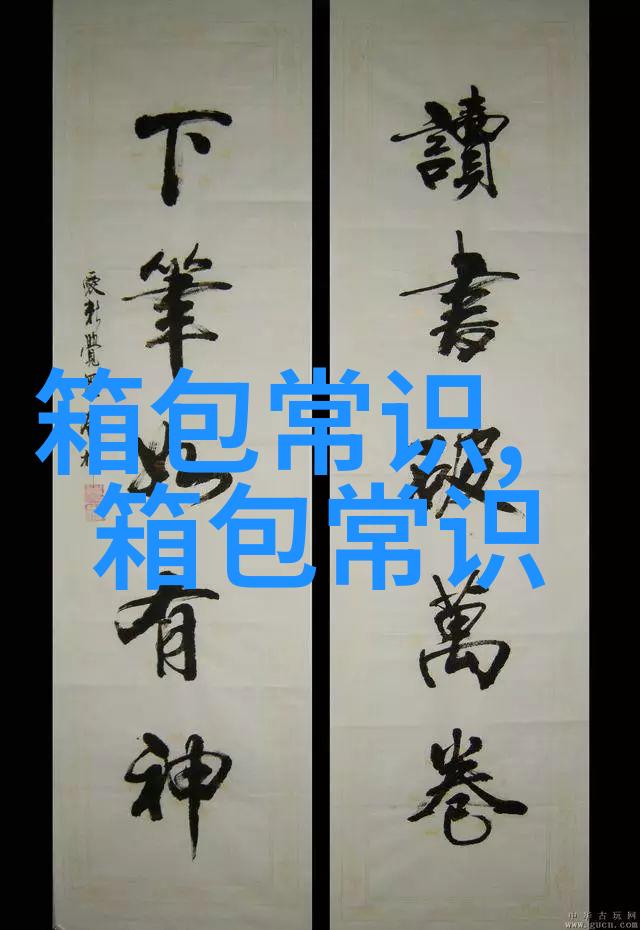 讀書破萬卷
下筆如有神
箱包常识,
箱包常识
中华古玩网
www.gucn.com